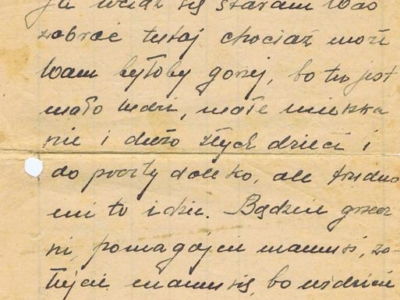 Ja wciąż się staram Was
zabrać tutaj chociaż może
Wam byłoby gorzej, bo tu jest
mało ludzi, małe mieszka
nie i dużo złych dzieci i
do poczty daleko, ale trudno
mi to idzie. Bądźcie grzecz
ni, pomagajcie mamusi,
mamusię, bo widzicie